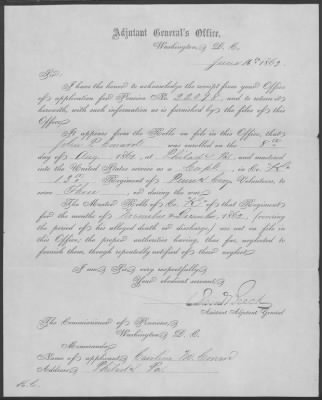 Adjutant General's Office,
Washington, D. C.
June 16th 1863.
Sir:
I have the honor to acknowledge the receipt from your Office
of application for Pension No. 22,878, and to return it
herewith, with such information as is furnished by the files of this
Office.
It appears from the Rolls on file in this Office, that
John P. Conard was enrolled on the 8th
day of Aug, 1862, at Philad Pa, and mustered
into the United States service as a Corpl, in Co. "K"
Regiment of Penn Cavy Volunteers, to
serve Three, or during the war.
The Muster Rolls of Co. "K" of that Regiment
for the months of November & December, 1862, (covering
the period of his alleged death or discharge,) are not on file in
this Office; the proper authorities having, thus far, neglected to
furnish them, though repeatedly notified of their neglect.
I am Sir, very respectfully,
Your obedient servant,
Assistant Adjutant General
The Commissioner of Pensions,
Washington, D. C.
Memoranda:
Name of applicant, Caroline M. Conard
Address, Philada Pa